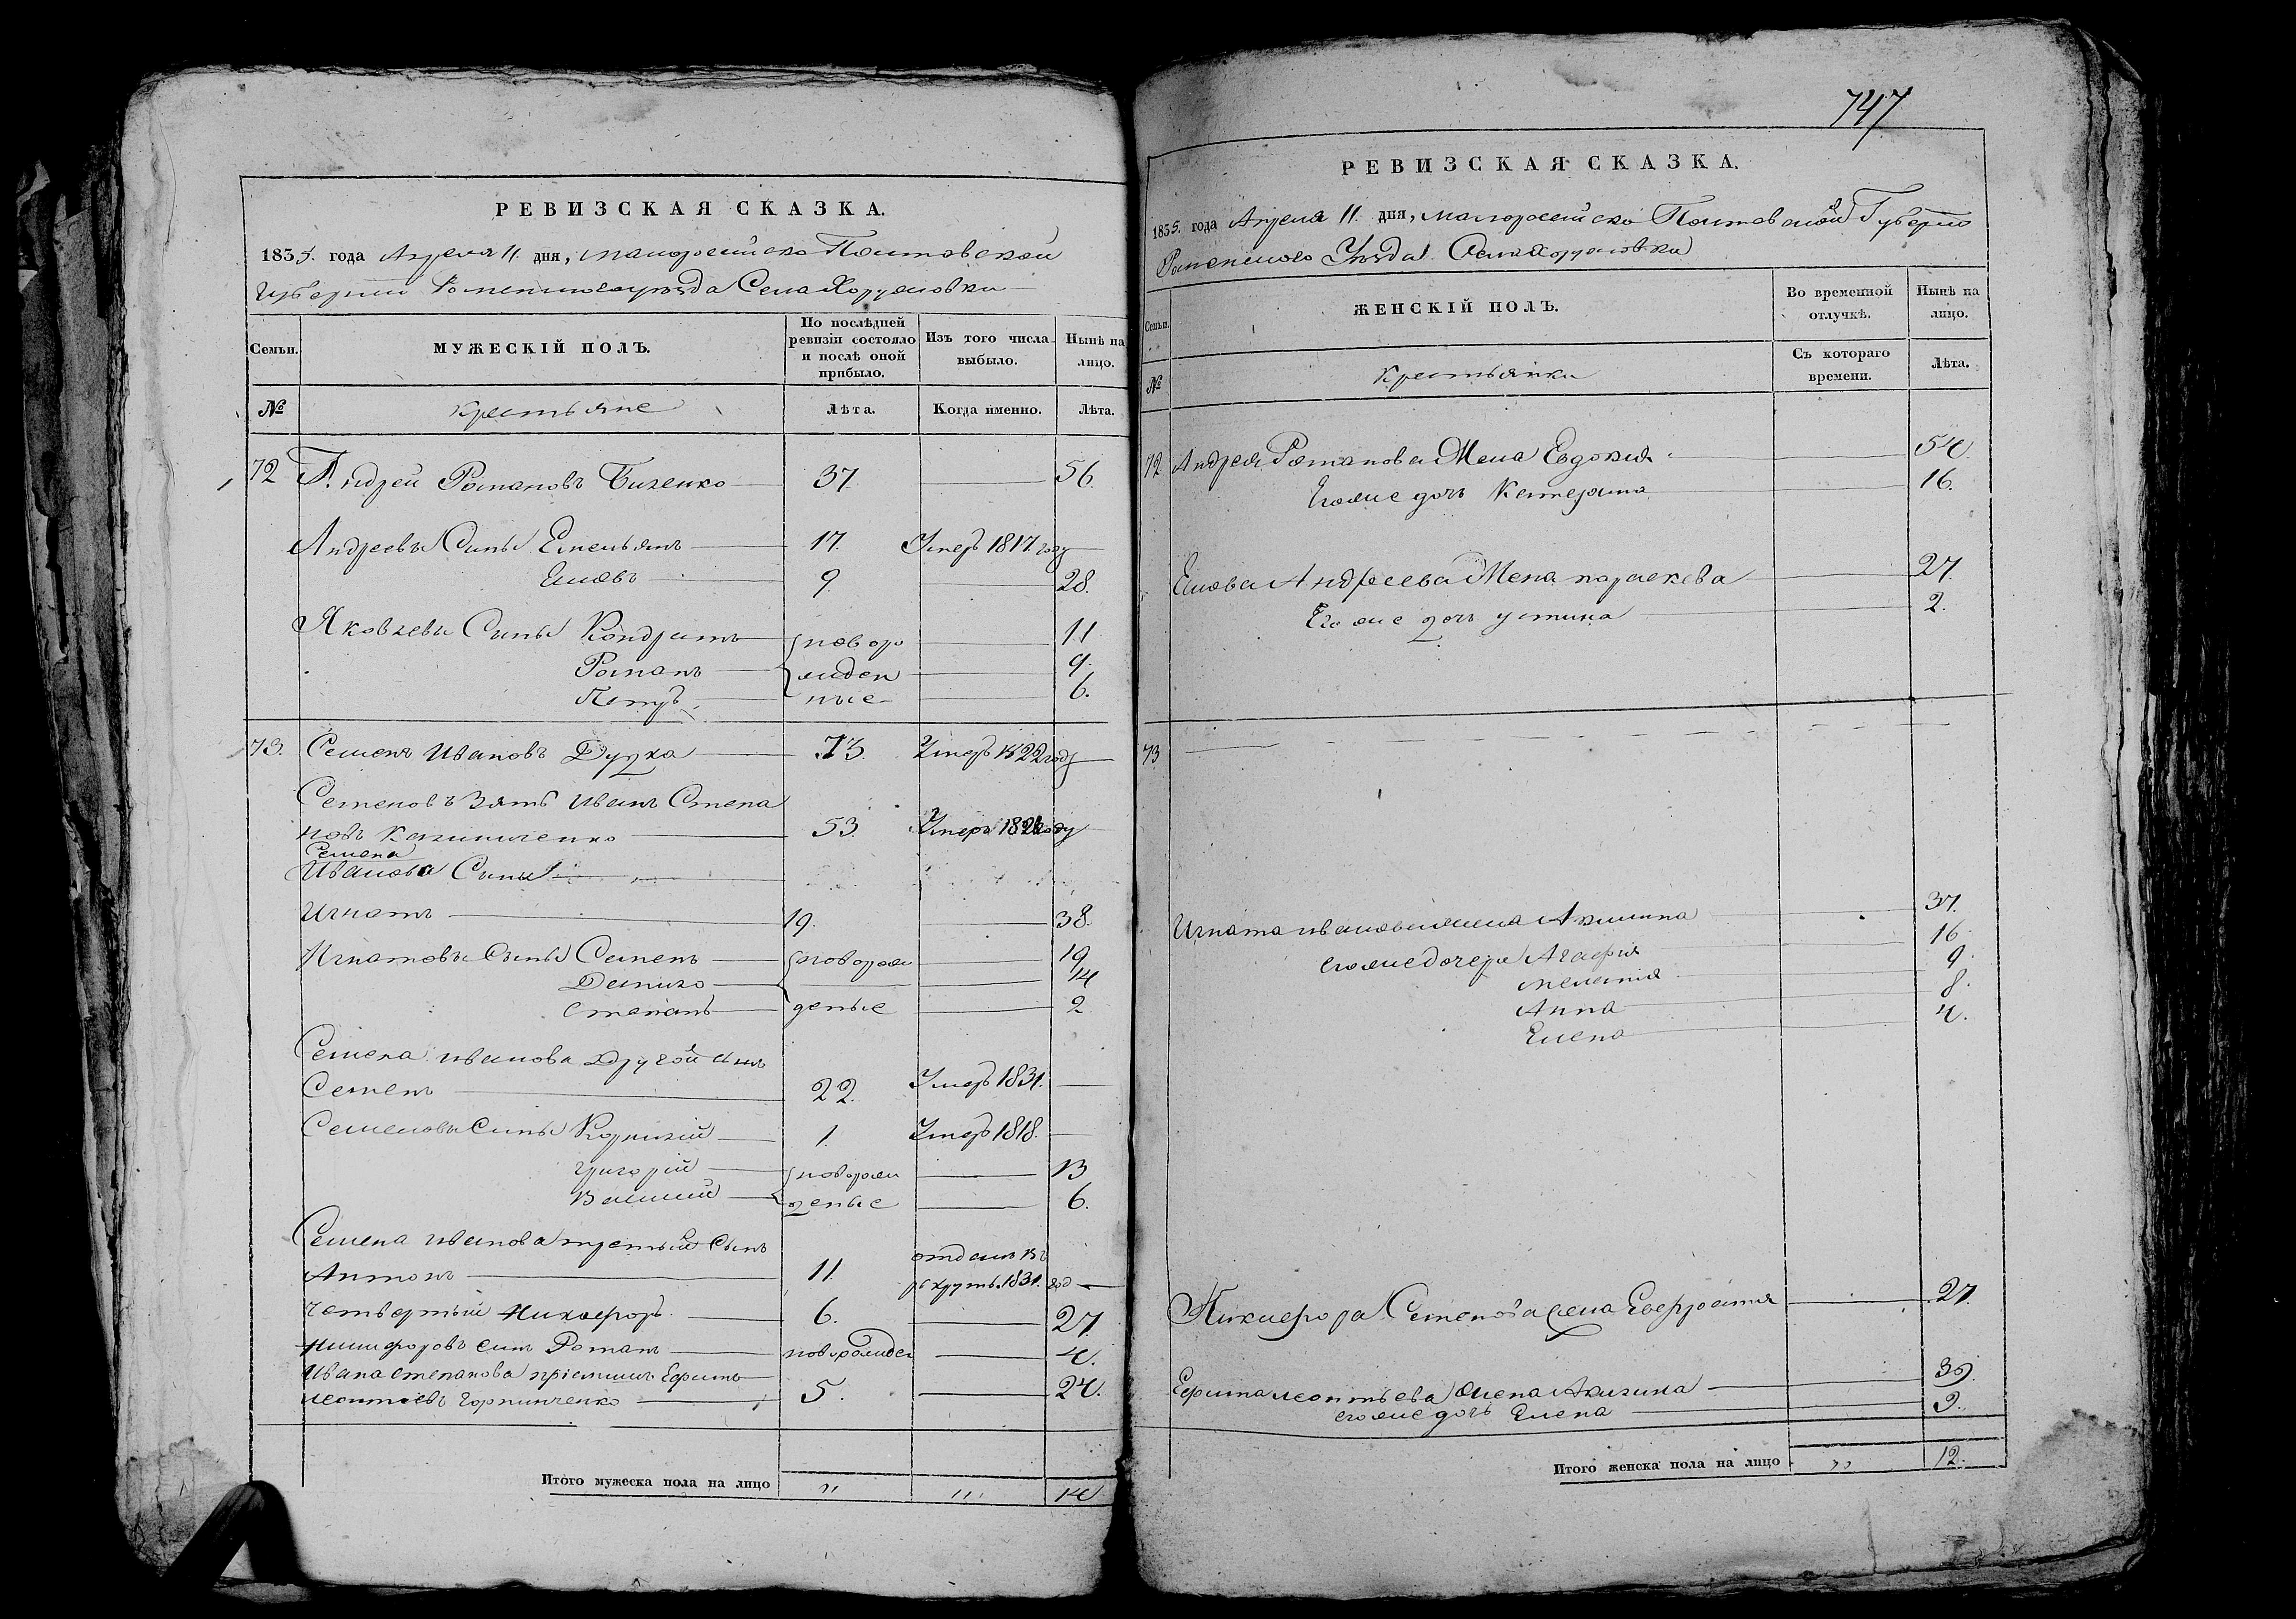 РЕВИЗСКАЯ СКАЗКА.
1835. года Апреля 11. дня, малороссийско Полтавской
Губернии Роменского уезда Села Хоружовки
Семьи.
МУЖЕСКІЙ ПОЛЪ.
По послѣдней ревизіи состояло и послѣ оной прибыло.
Изъ того числа выбыло.
Нынѣ на лицо.
№
Крестьяне
Лѣта.
Когда именно.
Лѣта.
72 Андрей Романовъ Бизенко 37 56.
Андреевы Сины Емельянъ 17. Умеръ 1817 году
Яковъ 9. 28.
Яковлевы Сины Кондратъ новоро 11
Романъ жден 9.
Петръ ные 6.
73. Семенъ Ивановъ Дудка 73. Умеръ 1822 году
Семеновъ Зять Иванъ Степа
новъ 53. Умеръ году
Семена
Иванова Сины
Игнатъ 19. 38.
Игнатовы Сыны Семенъ новорож 19
Данило 14
Степанъ деные 2
Семена иванова Другой сынъ
Семенъ 22. Умеръ 1831.
Семеновы Сины Корнилий 1. Умеръ 1818.
григорий новорож 13
Василий деные 6.
Семена иванова третий Сынъ
Антонъ 11. отданъ въ
рекруты 1831. год
четвертый Никифоръ 6. 27
Никифоровъ Сынъ Романъ новорожден 4.
Ивана степанова приемышъ Ефимъ
леонтиевъ горпинченко 5. 24.
Итого мужеска пола на лицо 〃 〃 14
747
РЕВИЗСКАЯ СКАЗКА.
1835. года Апреля 11. дня, малороссийско Полтавской Губернии
Роменского Уезда Села Хоружовки
Семьи.
ЖЕНСКІЙ ПОЛЪ.
Во временной отлучкѣ.
Нынѣ на лицо.
№
Крестьянки
Съ котораго времени.
Лѣта.
72 Андрея Романова Жена Евдокия 54
Егоже дочь Катерина 16.
Якова Андреева Жена параскева 27.
Егоже дочь устина 2.
73
Игната иванова жена Акилина 37.
егоже дочери Агафия 16
мелания 9
Анна 8.
Елена 4.
Никифора Семенова жена Евфросиния 27.
Ефима леонтьева жена Акилина 30.
егоже дочь Елена
Итого женска пола на лицо 〃 12.